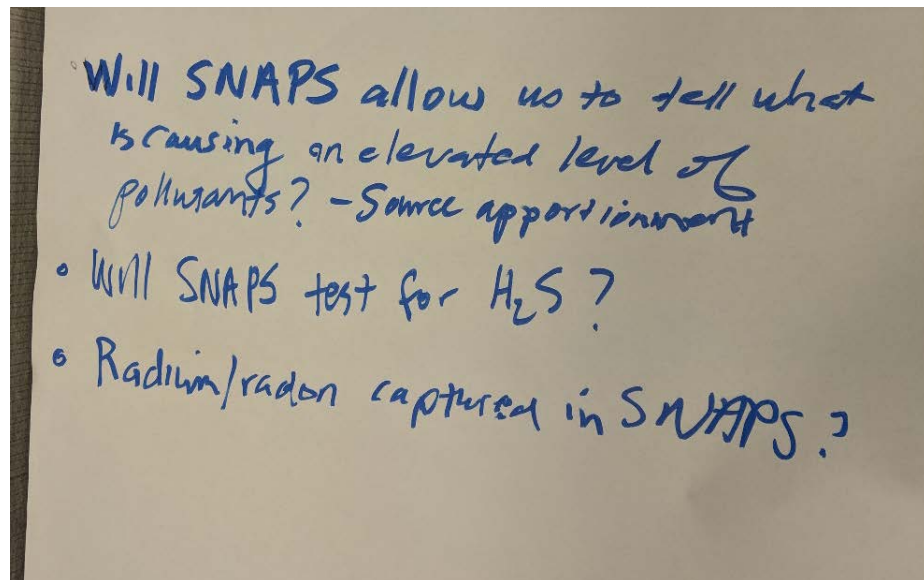 • Will SNAPS allow us to tell what
is causing an elevated level of
pollutants? - Source apportionment
• Will SNAPS test for H₂S?
• Radium/radon captured in SNAPS?